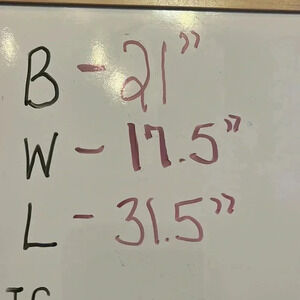 B - 21"
W - 17.5"
L - 31.5"